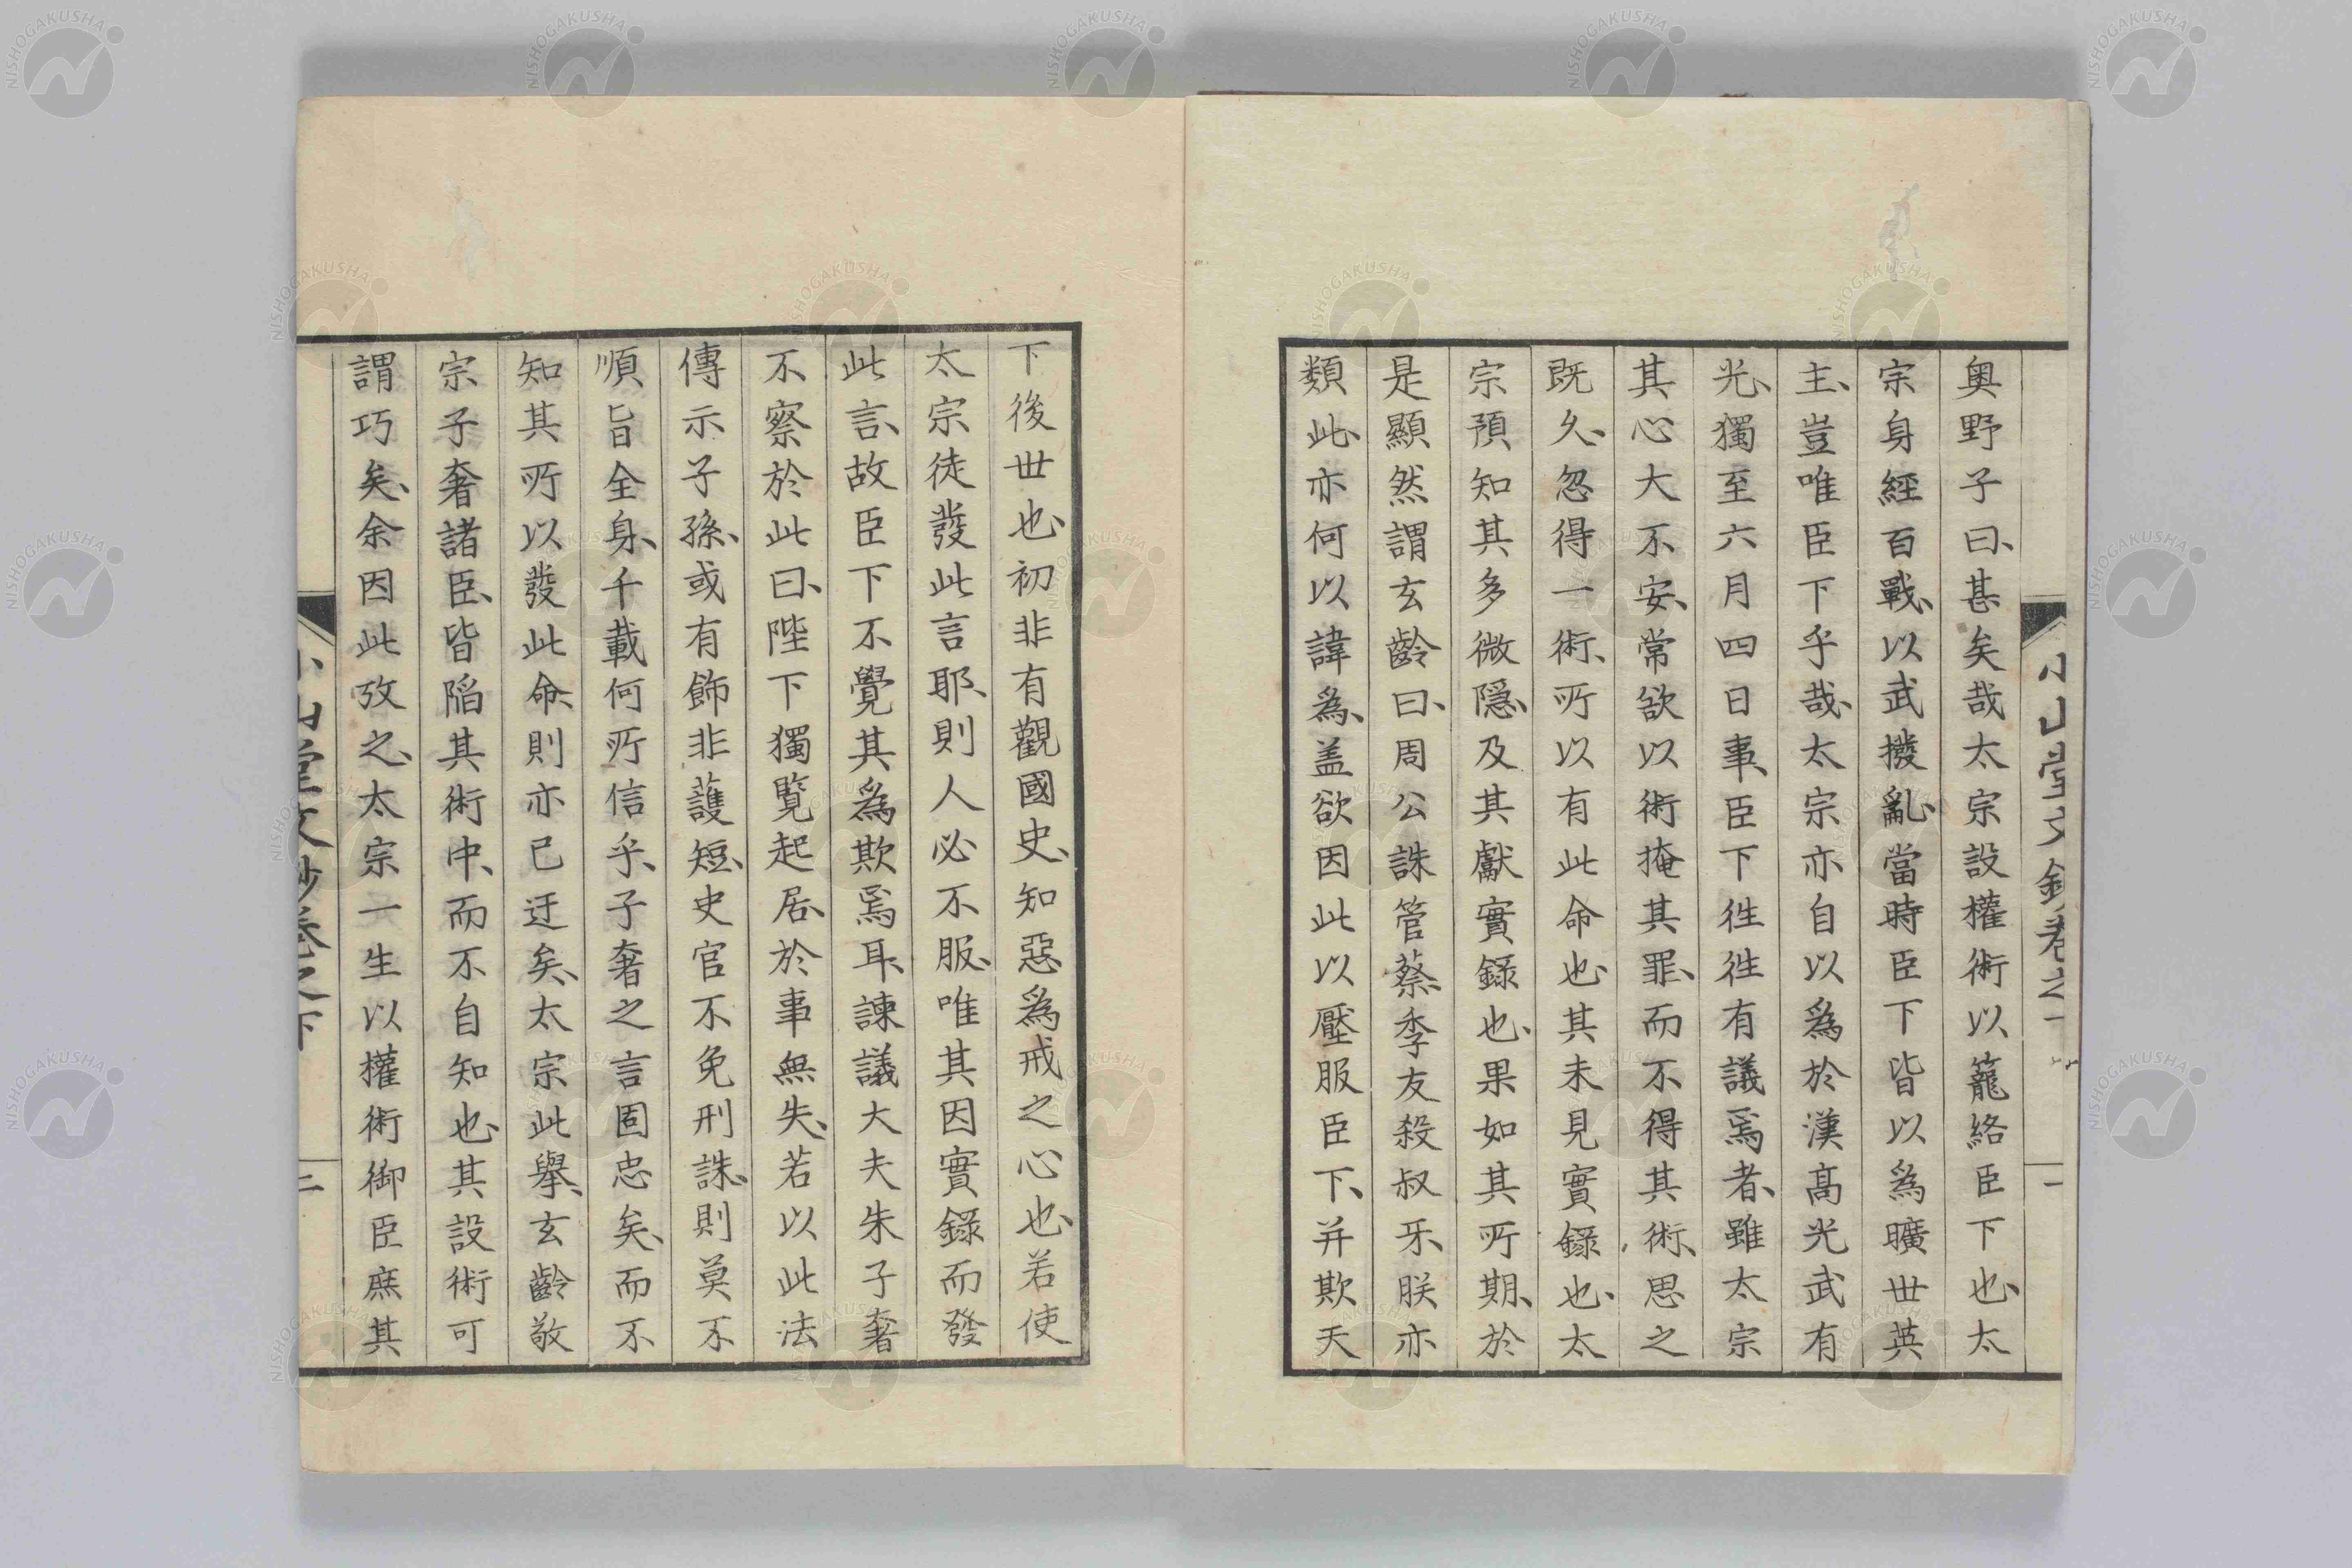 奥野子曰、甚矣哉太宗設權術以籠絡臣下也、太
宗身經百戰、以武撥亂、當時臣下皆以為曠世英
主、豈唯臣下乎哉、太宗亦自以為於漢高光武有
光、獨至六月四日事、臣下往往有議焉者、雖太宗
其心大不安、常欲以術掩其罪、而不得其術、思之
既久、忽得一術、所以有此命也、其未見實錄也、太
宗預知其多微隱、及其獻實錄也、果如其所期、於
是顯然謂玄齡曰、周公誅管蔡、季友殺叔牙、朕亦
類此、亦何以諱為、盖欲因此以壓服臣下、并欺天
下後世也、初非有觀國史、知惡為戒之心也、若使
太宗徒發此言耶、則人必不服、唯其因實錄而發
此言、故臣下不覺其為欺焉耳、諫議大夫朱子奢
不察於此曰、陛下獨覽起居、於事無失、若以此法
傳示子孫、或有飾非護短、史官不免刑誅、則莫不
順旨全身、千載何所信乎、子奢之言固忠矣、而不
知其所以發此命、則亦已迂矣、太宗此舉、玄齡敬
宗子奢諸臣、皆陷其術中、而不自知也、其設術可
謂巧矣、余因此攷之、太宗一生以權術御臣庶其
小山堂文鈔卷之下
二
NISHOGAKUSHA